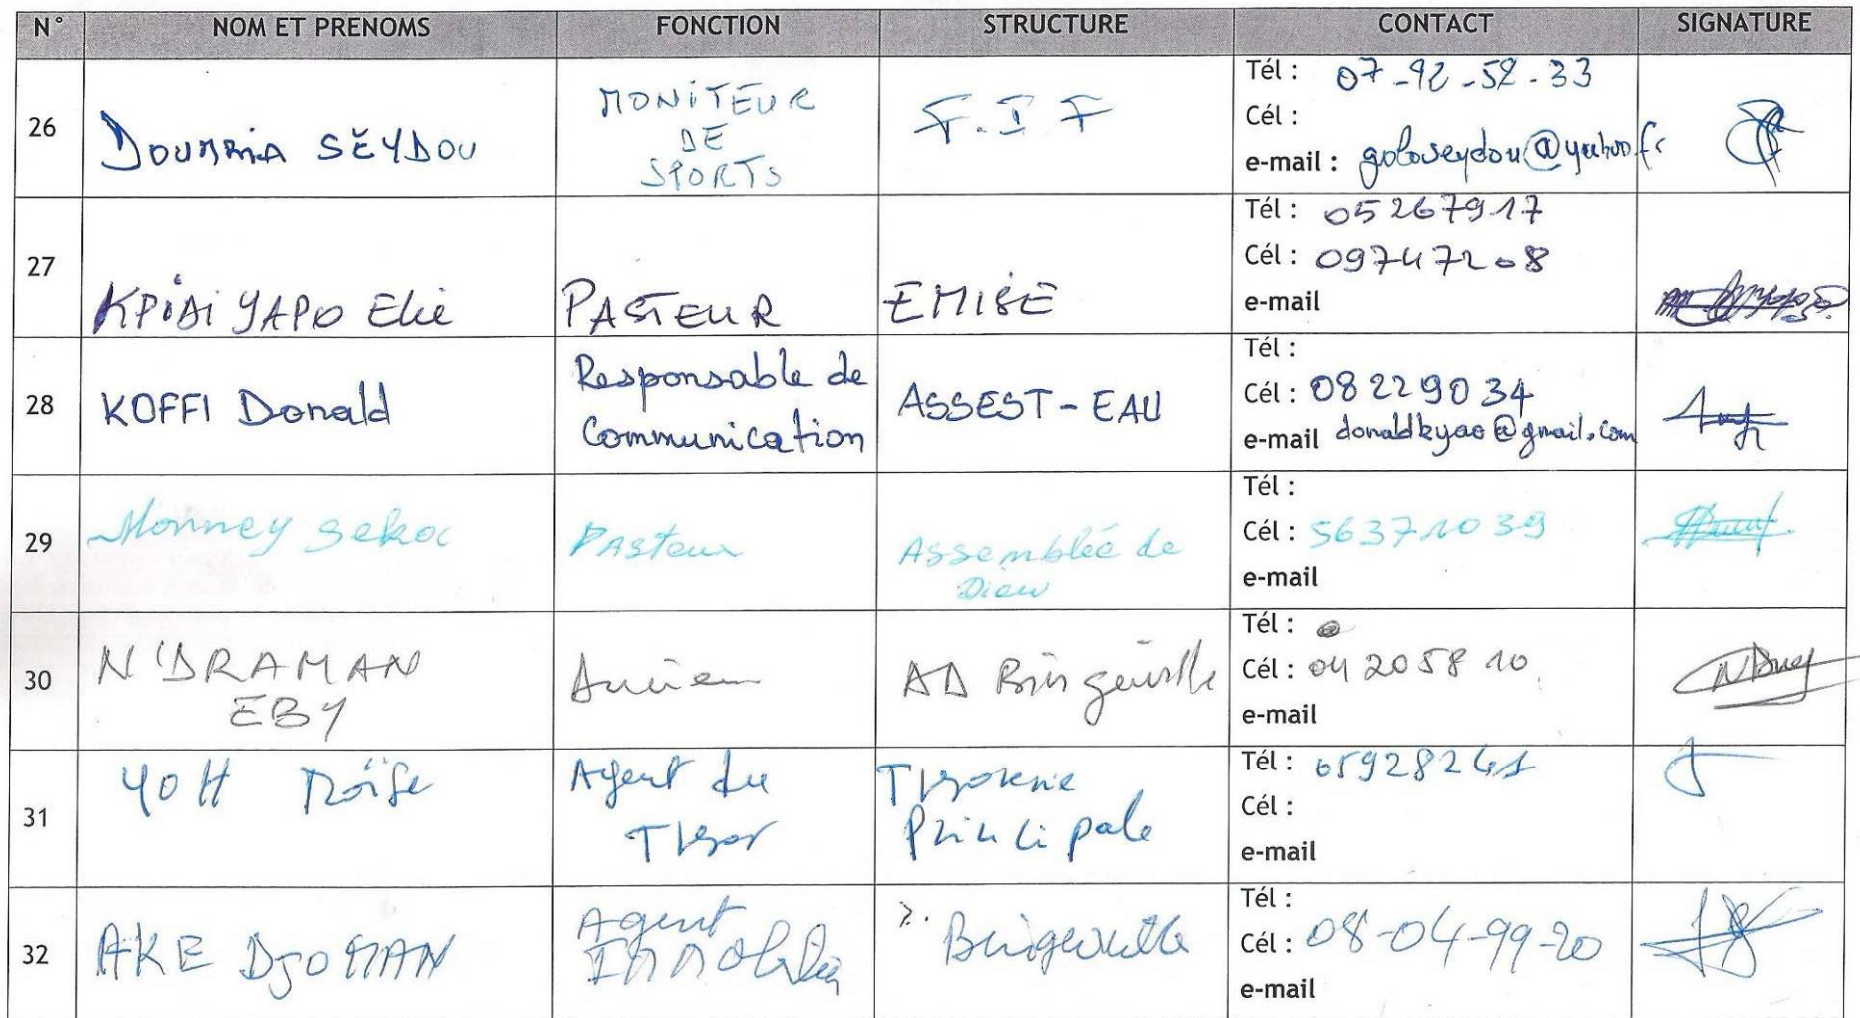 N° NOM ET PRENOMS FONCTION STRUCTURE CONTACT SIGNATURE
26 DOUMBIA SEYDOU MONITEUR DE SPORTS F.I.F Tél : 07-92-52-33
Cél :
e-mail : goloseydou@yahoo.fr
27 YAPO Elie PASTEUR Tél : 05267917
Cél : 09747208
e-mail
28 KOFFI Donald Responsable de Communication ASSEST-EAU Tél :
Cél : 08229034
e-mail donaldkyao@gmail.com
29 Monney Pasteur Assemblée de Dieu Tél :
Cél : 56371039
e-mail
30 N'DRAMAN EBY Ancien AD Bingerville Tél :
Cél : 04205810
e-mail
31 YOH Agent du Trésor Trésorerie Principale Tél :
Cél :
e-mail
32 AKE DJOMAN Agent Immobilier Bingerville Tél :
Cél : 08-04-99-20
e-mail